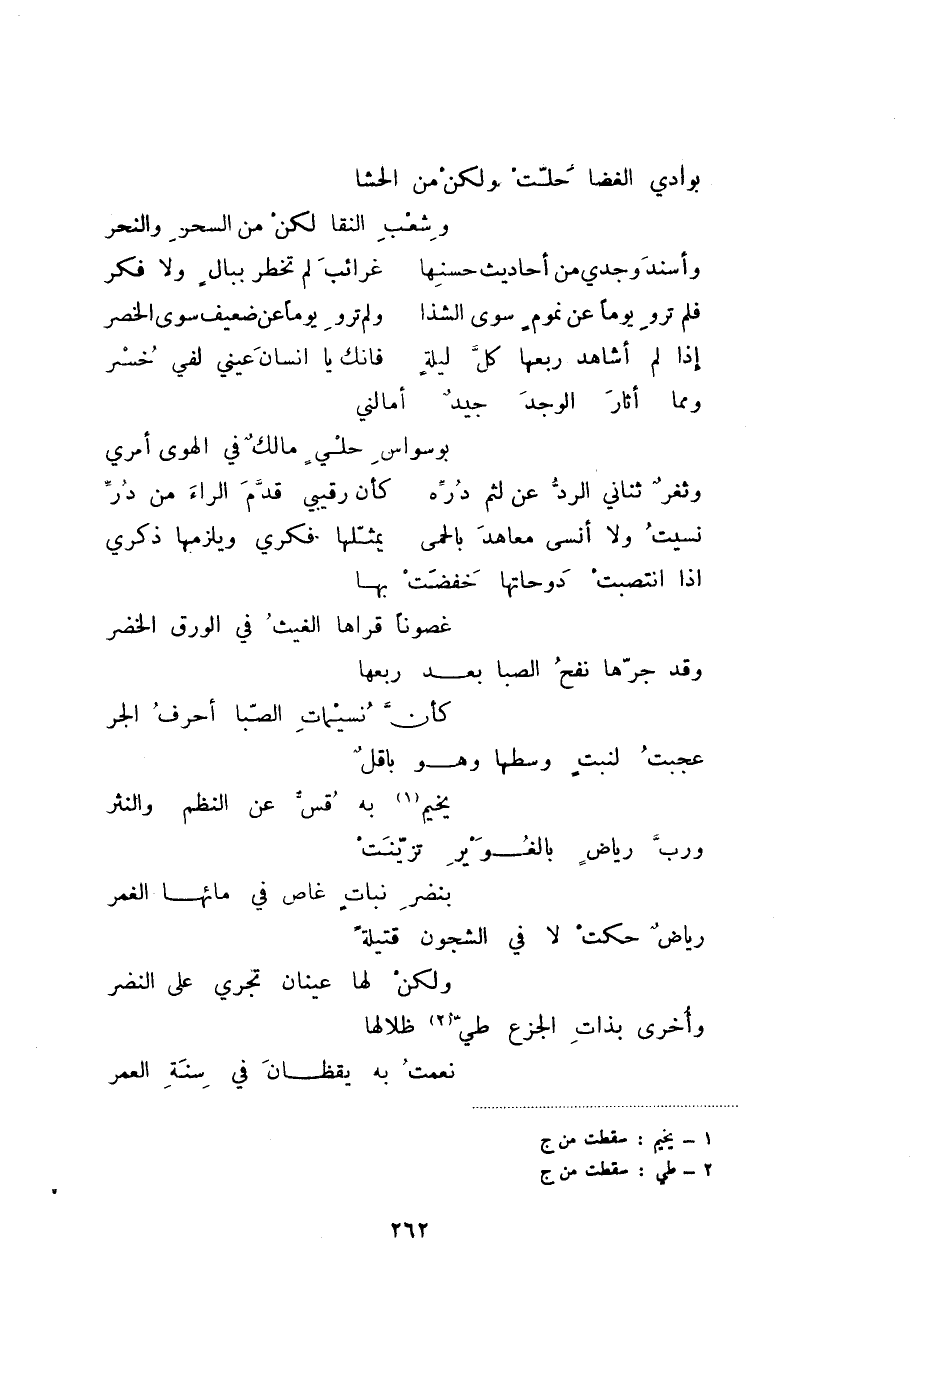 بوادي الغضا حُلّتْ ولكنْ من الحشا
وشِعْبِ النقا لكنْ من السحرِ والنحر
وأسندَ وجدي من أحاديث حسنِها غرائبَ لم تخطر ببالٍ ولا فكر
فلم تروِ يوماً عن نمومٍ سوى الشذا ولم تروِ يوماً عن ضعيف سوى الخصر
إذا لم أشاهد ربعها كلَّ ليلةٍ فانك يا انسانَ عيني لفي خُسْر
ومما أثارَ الوجدَ جيدٌ أمالني
بوسواسِ حلْيٍ مالكٌ في الهوى أمري
وثغرٌ ثناني الردُّ عن لثم دُرِّه كأن رقيبي قدَّمَ الراءَ من دُرِّ
نسيتُ ولا أنسى معاهدَ بالحمى يمثّلها فكري ويلزمها ذكري
اذا انتصبتْ دَوحاتها خَفضَتْ بها
غصوناً قراها الغيثُ في الورق الخضر
وقد جرّها نفحُ الصبا بعد ربعها
كأنَّ نُسيْماتِ الصّبا أحرفُ الجر
عجبتُ لنبتٍ وسطها وهو باقلٌ
يخيم(١) به قُسٌّ عن النظم والنثر
وربَّ رياضٍ بالغُوَيْرِ تزيّنَتْ
بنضرِ نباتٍ غاص في مائها الغمر
رياضٌ حكتْ لا في الشجون قتيلةً
ولكنْ لها عينان تجري على النضر
وأُخرى بذاتِ الجزع طيّ(٢) ظلالها
نعمتُ به يقظانَ في سِنَةِ العمر
١ – يخيم : سقطت من ج
٢ – طي : سقطت من ج
٢٦٢